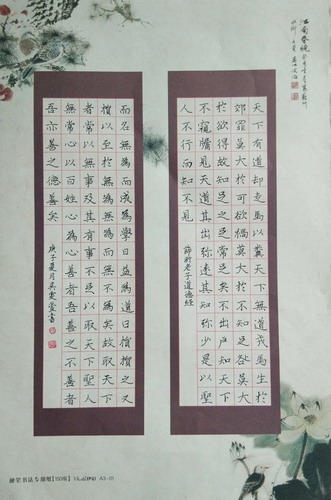 天下有道却走馬以糞天下無道戎馬生於
郊罪莫大於可欲禍莫大於不知足咎莫大
於欲得故知足之足常足矣不出户知天下
不窺牖見天道其出弥遠其知弥少是以聖
人不行而知不見
節於老子道德經
而名無為而成為學日益為道日損損之又
損以至於無為無為而無不為矣故取天下
者常以無事及其有事不足以取天下聖人
無常心以百姓心為心善者吾善之不善者
吾亦善之德善矣
庚子夏月吳雯書
硬笔书法专用纸【150格】 A3-01